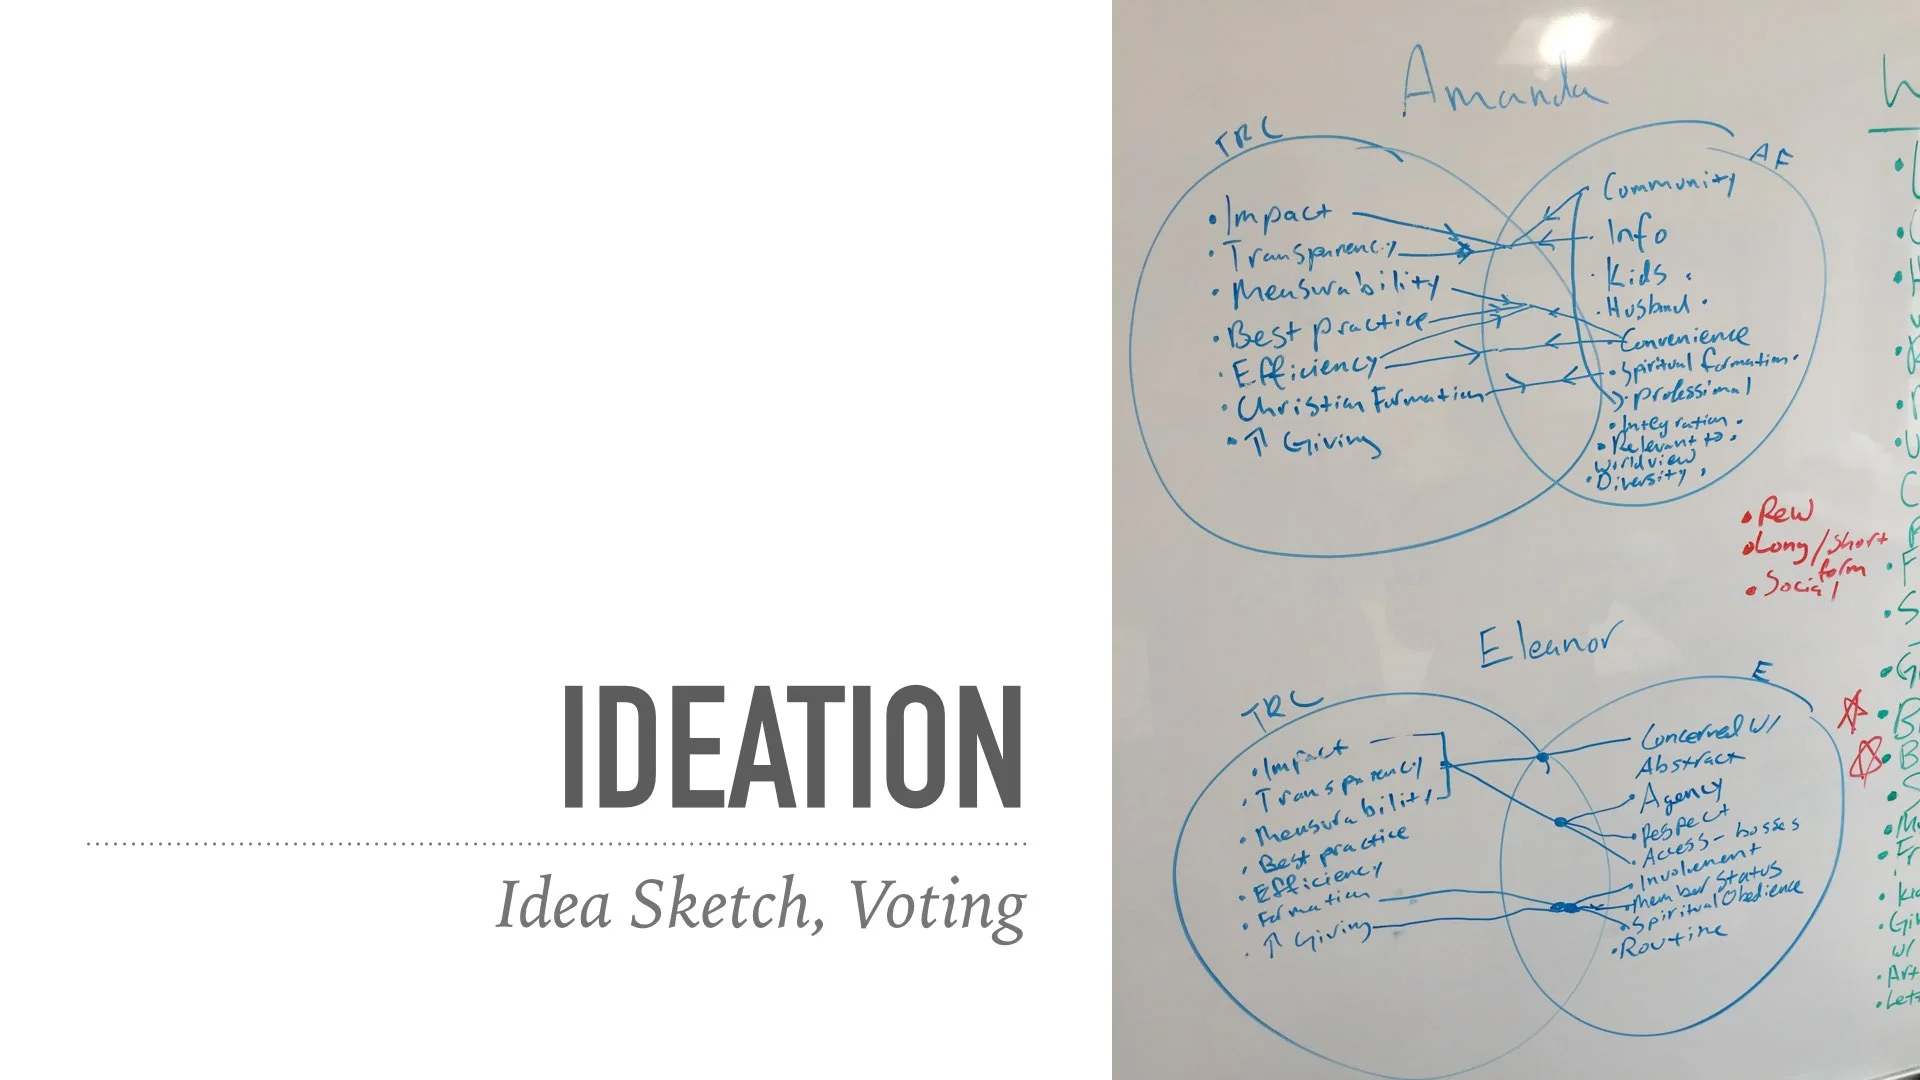 IDEATION
Idea Sketch, Voting
Amanda
TRC
AF
• Impact
• Transparency
• Measurability
• Best practice
• Efficiency
• Christian Formation
• ↑ Giving
Community
Info
• Kids •
• Husband •
• Convenience
• Spiritual formation •
• Professional
• Integration •
• Relevant to •
worldview
• Diversity •
• Rew
• Long/short
form
• Social
Eleanor
TRC
E
• Impact
• Transparency
• Measurability
• Best practice
• Efficiency
• Formation
• ↑ Giving
Concerned w/
Abstract
• Agency
• Respect
• Access - bosses
• Involvement
• Member status
• Spiritual Obedience
• Routine